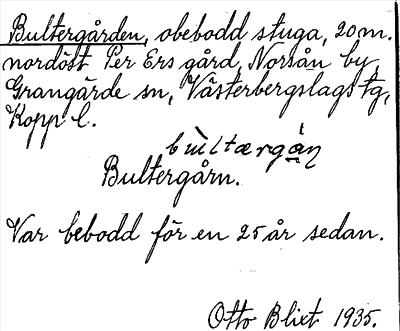 Bultergården, obebodd stuga, 20 m.
nordöst Per Ers gård, Norsån by,
Grangärde sn, Västerbergslags tg,
Kopp l.
Bultergårn.
Var bebodd för en 25 år sedan.
Otto Blixt 1935.